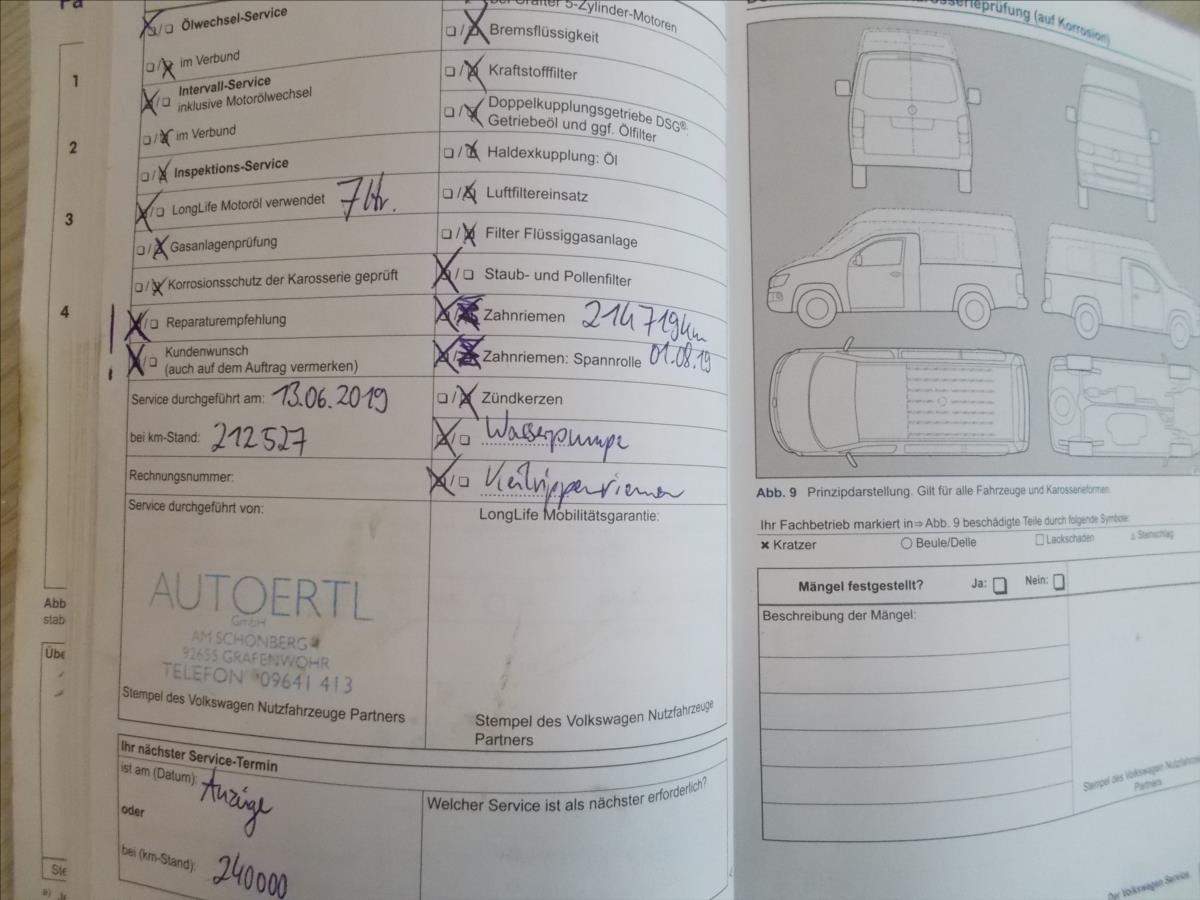 1
2
3
4
Abb
stab
Übe
Ölwechsel-Service
im Verbund
Intervall-Service
inklusive Motorölwechsel
im Verbund
Inspektions-Service
LongLife Motoröl verwendet 7ltr.
Gasanlagenprüfung
Korrosionsschutz der Karosserie geprüft
Reparaturempfehlung
Kundenwunsch
(auch auf dem Auftrag vermerken)
Service durchgeführt am: 13.06.2019
bei km-Stand: 212527
Rechnungsnummer:
Service durchgeführt von:
AUTOERTL
GmbH
AM SCHÖNBERG
92655 GRAFENWÖHR
TELEFON 09641 413
Stempel des Volkswagen Nutzfahrzeuge Partners
5-Zylinder-Motoren
Bremsflüssigkeit
Kraftstofffilter
Doppelkupplungsgetriebe DSG®:
Getriebeöl und ggf. Ölfilter
Haldexkupplung: Öl
Luftfiltereinsatz
Filter Flüssiggasanlage
Staub- und Pollenfilter
Zahnriemen 214719km
Zahnriemen: Spannrolle 01.08.19
Zündkerzen
Wasserpumpe
Keilrippenriemen
LongLife Mobilitätsgarantie:
Stempel des Volkswagen Nutzfahrzeuge
Partners
Ihr nächster Service-Termin
ist am (Datum): Anzeige
oder
bei (km-Stand): 240000
Welcher Service ist als nächster erforderlich?
prüfung (auf Korrosion)
Abb. 9 Prinzipdarstellung. Gilt für alle Fahrzeuge und Karosserieformen.
Ihr Fachbetrieb markiert in ⇒ Abb. 9 beschädigte Teile durch folgende Symbole:
✖ Kratzer ○ Beule/Delle □ Lackschaden △ Steinschlag
Mängel festgestellt? Ja: Nein:
Beschreibung der Mängel:
Stempel des Volkswagen Nutzfahrze
Partners
Der Volkswagen Service